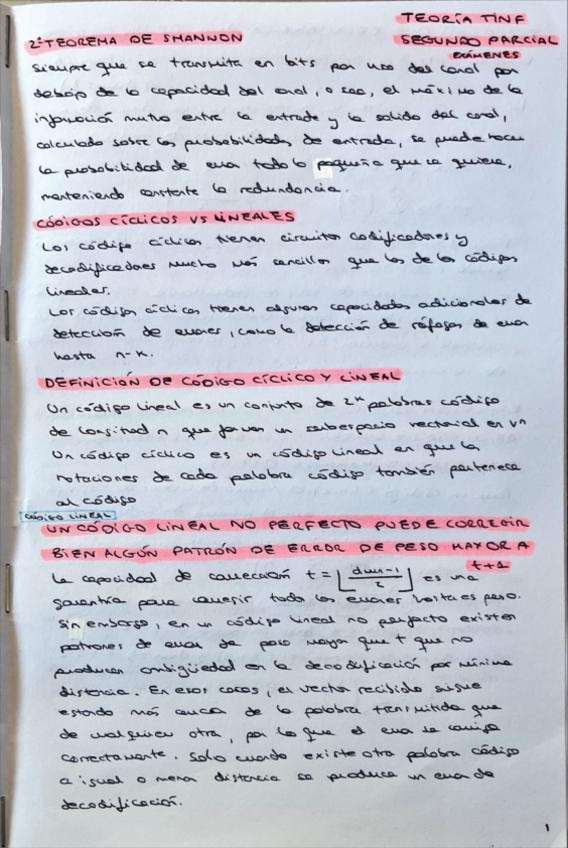 TEORÍA TINF
2º TEOREMA DE SHANNON
SEGUNDO PARCIAL
EXÁMENES
Siempre que se transmita en bits por uso del canal por
debajo de la capacidad del canal, o sea, el máximo de la
información mutua entre la entrada y la salida del canal,
calculado sobre las probabilidades de entrada, se puede hacer
la probabilidad de error todo lo pequeña que se quiera,
manteniendo constante la redundancia.
CÓDIGOS CÍCLICOS VS LINEALES
Los código cíclicos tienen circuitos codificadores y
decodificadores mucho más sencillos que los de los códigos
lineales.
Los códigos cíclicos tienen algunas capacidades adicionales de
detección de errores, como la detección de ráfagas de error
hasta n-k.
DEFINICIÓN DE CÓDIGO CÍCLICO Y LINEAL
Un código lineal es un conjunto de 2ᵏ palabras código
de longitud n que forman un subespacio vectorial en Vⁿ
Un código cíclico es un código lineal en que la
rotaciones de cada palabra código también pertenece
al código
CÓDIGO LINEAL
UN CÓDIGO LINEAL NO PERFECTO PUEDE CORREGIR
BIEN ALGÚN PATRÓN DE ERROR DE PESO MAYOR A
t+1
La capacidad de corrección t = ⌊(dmin-1)/2⌋ es una
garantía para corregir todos los errores hasta es peso.
Sin embargo, en un código lineal no perfecto existen
patrones de error de peso mayor que t que no
producen ambigüedad en la decodificación por mínima
distancia. En esos casos, el vector recibido sigue
estando más cerca de la palabra transmitida que
de cualquier otra, por lo que el error se corrige
correctamente. Solo cuando existe otra palabra código
a igual o menor distancia se produce un error de
decodificación.
1